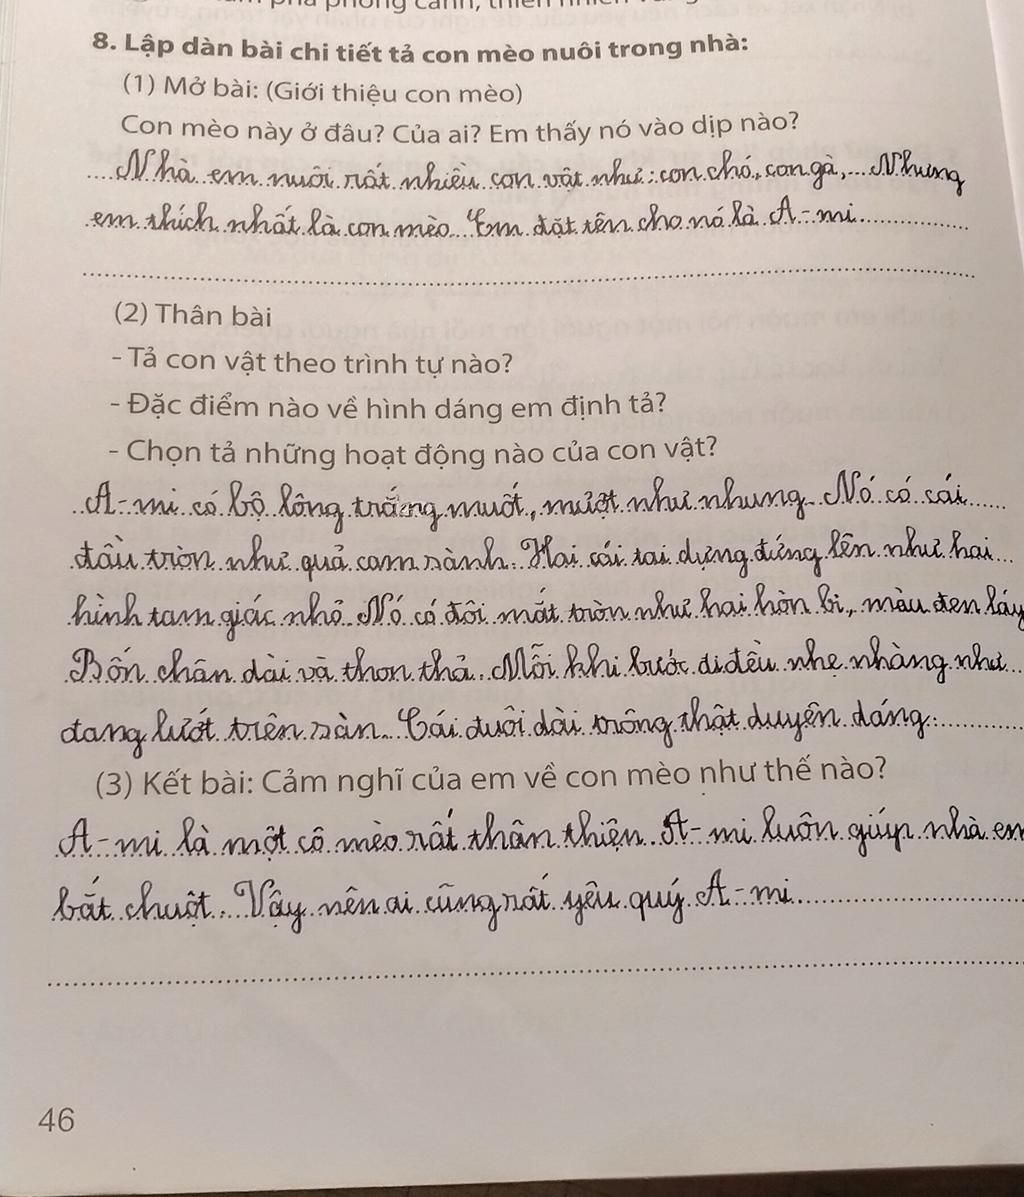 phá phong cảnh, thiên nhiên
8. Lập dàn bài chi tiết tả con mèo nuôi trong nhà:
(1) Mở bài: (Giới thiệu con mèo)
Con mèo này ở đâu? Của ai? Em thấy nó vào dịp nào?
Nhà em nuôi rất nhiều con vật như: con chó, con gà,... Nhưng
em thích nhất là con mèo. Em đặt tên cho nó là A-mi
(2) Thân bài
- Tả con vật theo trình tự nào?
- Đặc điểm nào về hình dáng em định tả?
- Chọn tả những hoạt động nào của con vật?
A-mi có bộ lông trắng muốt, mượt như nhung. Nó có cái
đầu tròn như quả cam sành. Hai cái tai dựng đứng lên như hai
hình tam giác nhỏ. Nó có đôi mắt tròn như hai hòn bi, màu đen láy
Bốn chân dài và thon thả. Mỗi khi bước đi đều nhẹ nhàng như
đang lướt trên sàn. Cái đuôi dài trông thật duyên dáng.
(3) Kết bài: Cảm nghĩ của em về con mèo như thế nào?
A-mi là một cô mèo rất thân thiện. A-mi luôn giúp nhà em
bắt chuột. Vậy nên ai cũng rất yêu quý A-mi
46